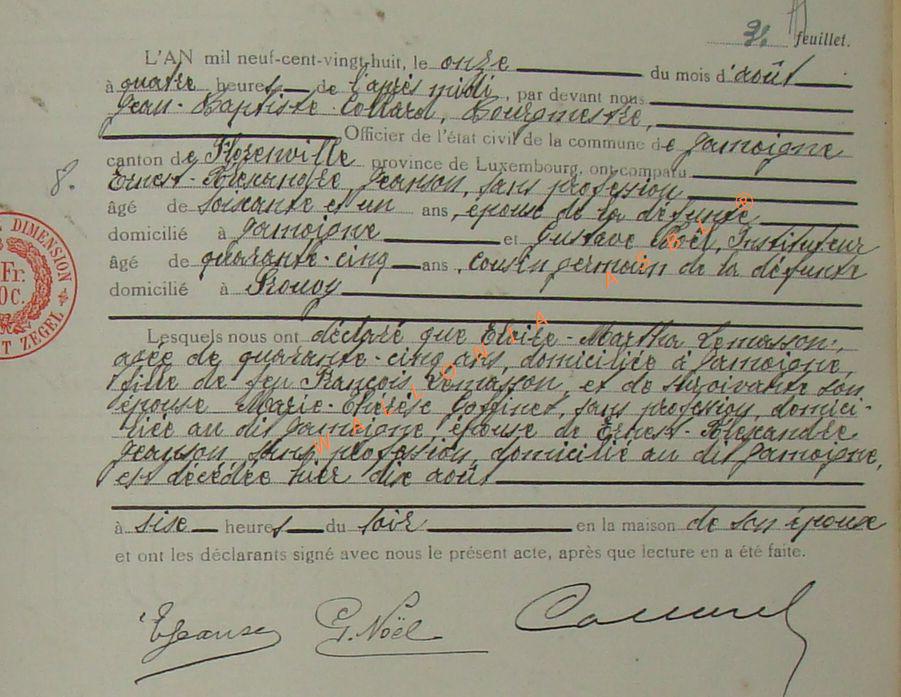 31. feuillet.
L'AN mil neuf-cent-vingt-huit, le onze du mois d'août
à quatre heures de l'après midi, par devant nous
Jean-Baptiste Collard, Bourgmestre,
Officier de l'état civil de la commune de Jamoigne
8.
canton de Florenville province de Luxembourg, ont comparu
Ernest-Alexandre Jeanson, sans profession
âgé de soixante et un ans, époux de la défunte
domicilié à Jamoigne et Gustave Noël, Instituteur
âgé de quarante-cinq ans, cousin germain de la défunte
domicilié à Prouvy
DIMENSION
Fr.
ZEGEL
Lesquels nous ont déclaré que Elvire-Martha Lemasson,
agée de quarante-cinq ans, domiciliée à Jamoigne,
fille de feu François Lemasson, et de survivante son
épouse Marie-Thérèse Goffinet, sans profession, domici-
liée au dit Jamoigne, épouse de Ernest-Alexandre
Jeanson, sans profession, domicilié au dit Jamoigne,
est décédée hier dix août
à sise heures du soir en la maison de son époux
et ont les déclarants signé avec nous le présent acte, après que lecture en a été faite.
EJeanson G. Noël Collard
WALLONIA ASBL ®